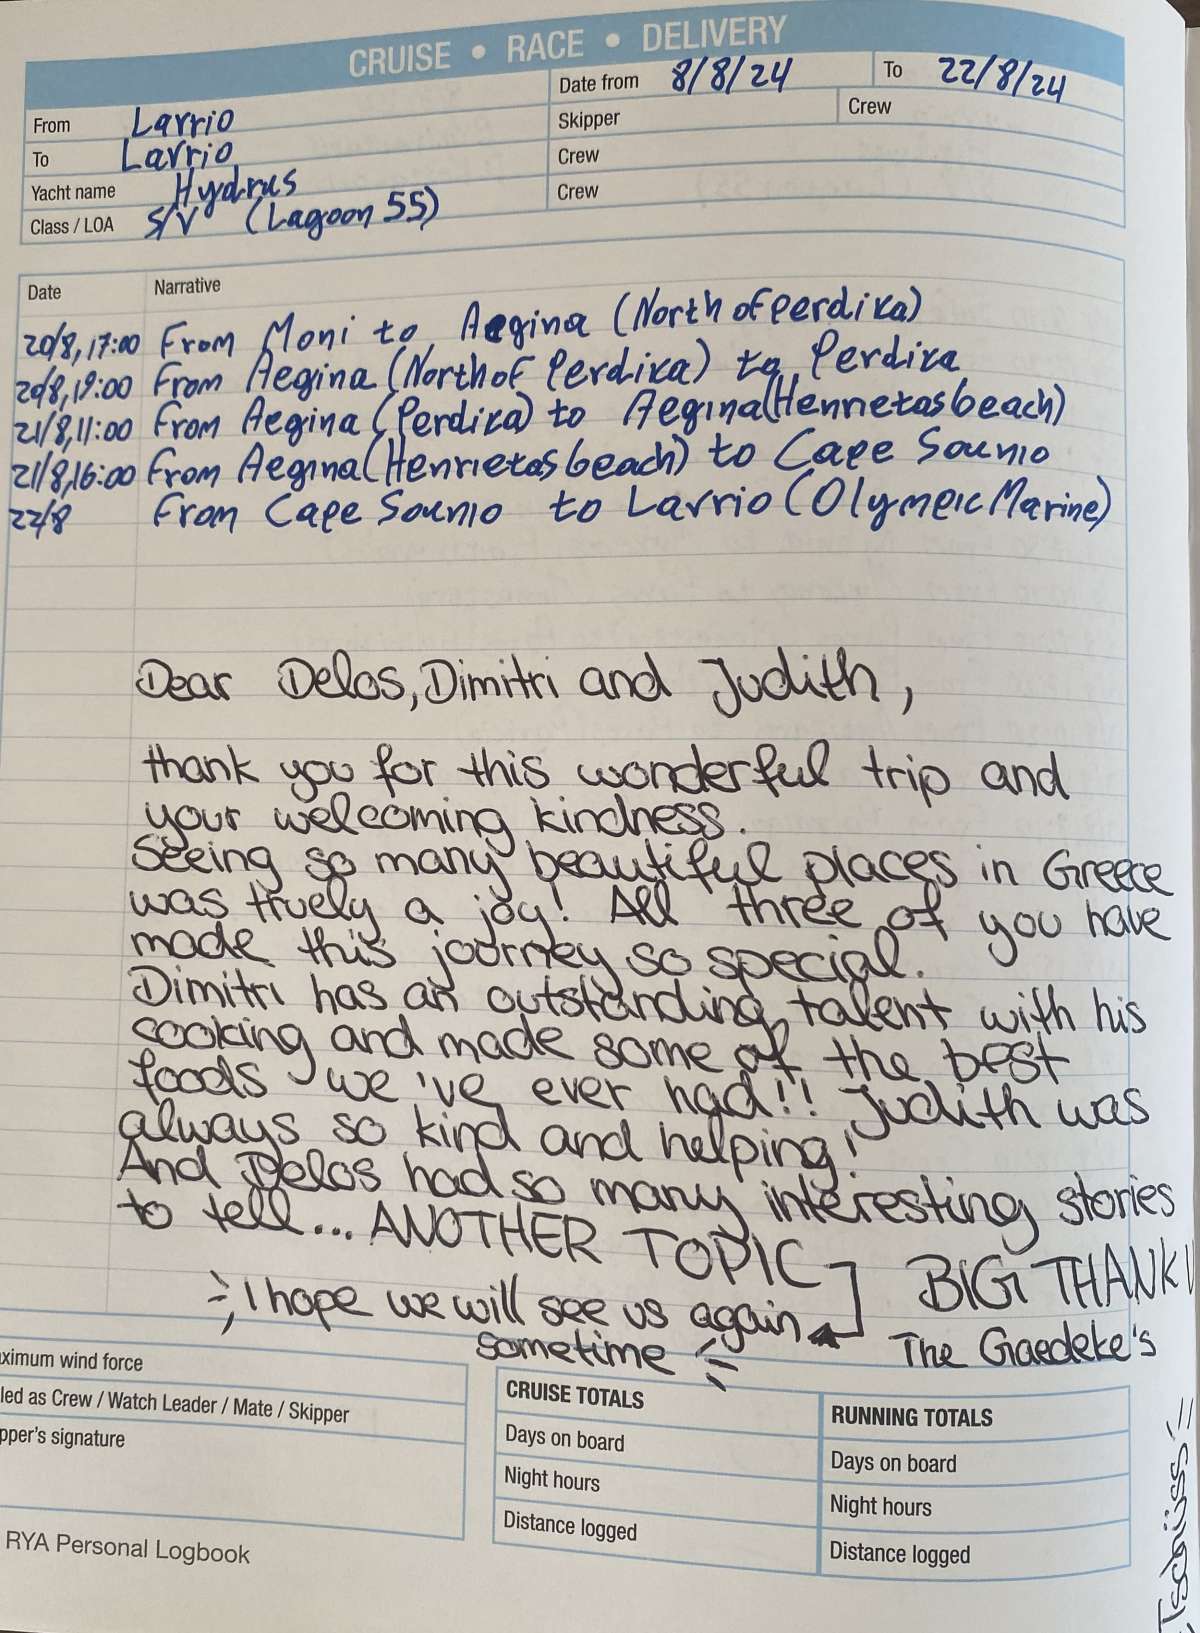 CRUISE • RACE • DELIVERY
Date from 8/8/24 To 22/8/24
From Lavrio
Skipper
Crew
To Lavrio
Crew
Yacht name Hydrus
Crew
Class / LOA S/V (Lagoon 55)
Date Narrative
20/8, 17:00 From Moni to Aegina (North of perdika)
20/8, 19:00 From Aegina (North of Perdika) to Perdika
21/8, 11:00 From Aegina (Perdika) to Aegina (Henrietas beach)
21/8, 16:00 From Aegina (Henrietas beach) to Cape Sounio
22/8 From Cape Sounio to Lavrio (Olympic Marine)
Dear Delos, Dimitri and Judith,
thank you for this wonderful trip and
your welcoming kindness.
Seeing so many beautiful places in Greece
was truely a joy! All three of you have
made this journey so special.
Dimitri has an outstanding talent with his
cooking and made some of the best
foods we've ever had!! Judith was
always so kind and helping!
And Delos had so many interesting stories
to tell... ANOTHER TOPIC
BIG THANK
I hope we will see us again
sometime
The Gaedeke's
Tschüsss
ximum wind force
led as Crew / Watch Leader / Mate / Skipper
pper's signature
CRUISE TOTALS
Days on board
Night hours
Distance logged
RUNNING TOTALS
Days on board
Night hours
Distance logged
RYA Personal Logbook